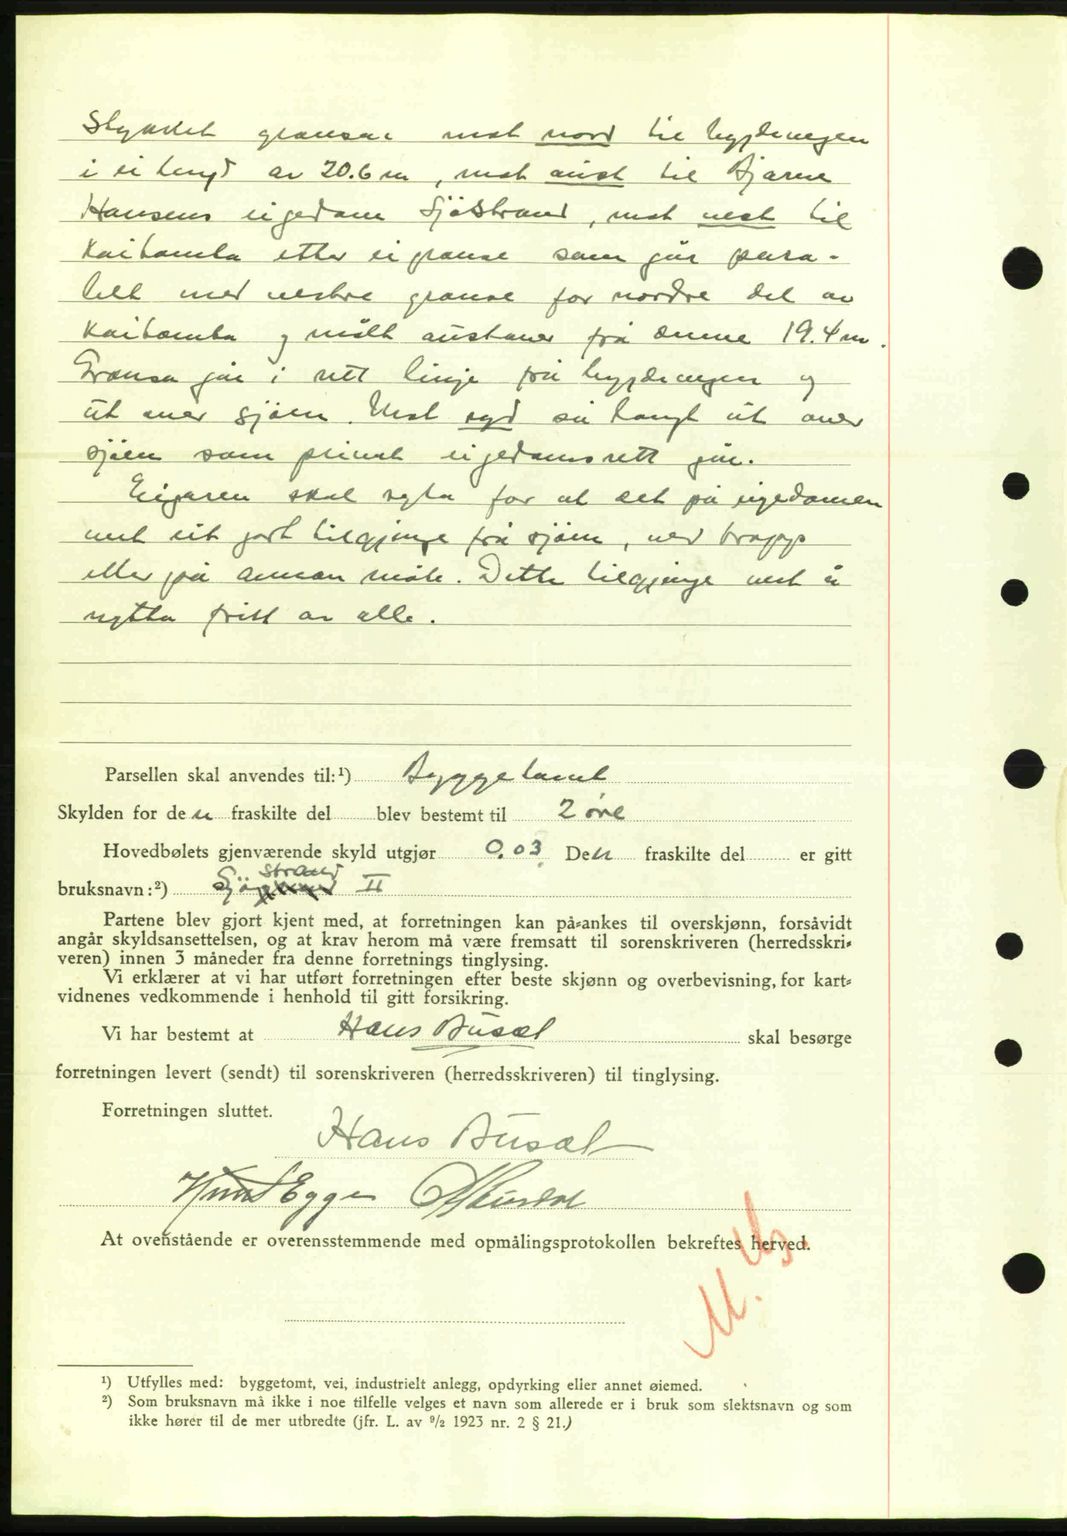 Stykket grensar mot nord til bygdevegen
i ei lengd av 20.6 m, mot aust til Bjarne
Hansens eigedom Sjöstrand, mot vest til
Kaitomta etter ei grense som går para-
lelt med vestre grense for nordre del av
Kaitomta og målt austover frå denne 19.4 m.
Grensa går i rett linje frå bygdevegen og
ut over sjöen. Mot syd så langt ut over
sjöen som privat eigedomsrett går.
Eigaren skal syta for at det på eigedomen
vert eit godt tilgjenge frå sjöen, ved trapp
eller på annan måte. Dette tilgjenge vert å
nytta fritt av alle.
Parsellen skal anvendes til:¹) Byggetomt
Skylden for den fraskilte del blev bestemt til 2 øre
Hovedbølets gjenværende skyld utgjør 0.03 Den fraskilte del er gitt
strand
bruksnavn:²) Sjö II
Partene blev gjort kjent med, at forretningen kan på-ankes til overskjønn, forsåvidt
angår skyldsansettelsen, og at krav herom må være fremsatt til sorenskriveren (herredsskri-
veren) innen 3 måneder fra denne forretnings tinglysing.
Vi erklærer at vi har utført forretningen efter beste skjønn og overbevisning, for kart-
vidnenes vedkommende i henhold til gitt forsikring.
Vi har bestemt at Hans Busæt skal besørge
forretningen levert (sendt) til sorenskriveren (herredsskriveren) til tinglysing.
Forretningen sluttet.
Hans Busæt
Knut Eggen
At ovenstående er overensstemmende med opmålingsprotokollen bekreftes herved.
¹) Utfylles med: byggetomt, vei, industrielt anlegg, opdyrking eller annet øiemed.
²) Som bruksnavn må ikke i noe tilfelle velges et navn som allerede er i bruk som slektsnavn og som
ikke hører til de mer utbredte (jfr. L. av 9/2 1923 nr. 2 § 21.)